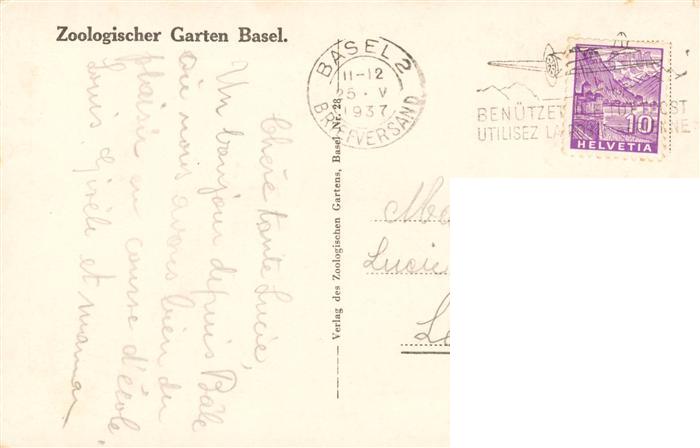 Zoologischer Garten Basel.
Chère tante Lucie,
Un bonjour depuis Bâle
où nous avons bien du
plaisir en course d'école.
Louis Gisèle et maman
Verlag des Zoologischen Gartens, Basel Nr. 28
BASEL 2
11-12
25. V
1937
BRIEFVERSAND
BENÜTZET
UTILISEZ LA
10
HELVETIA
Lucie